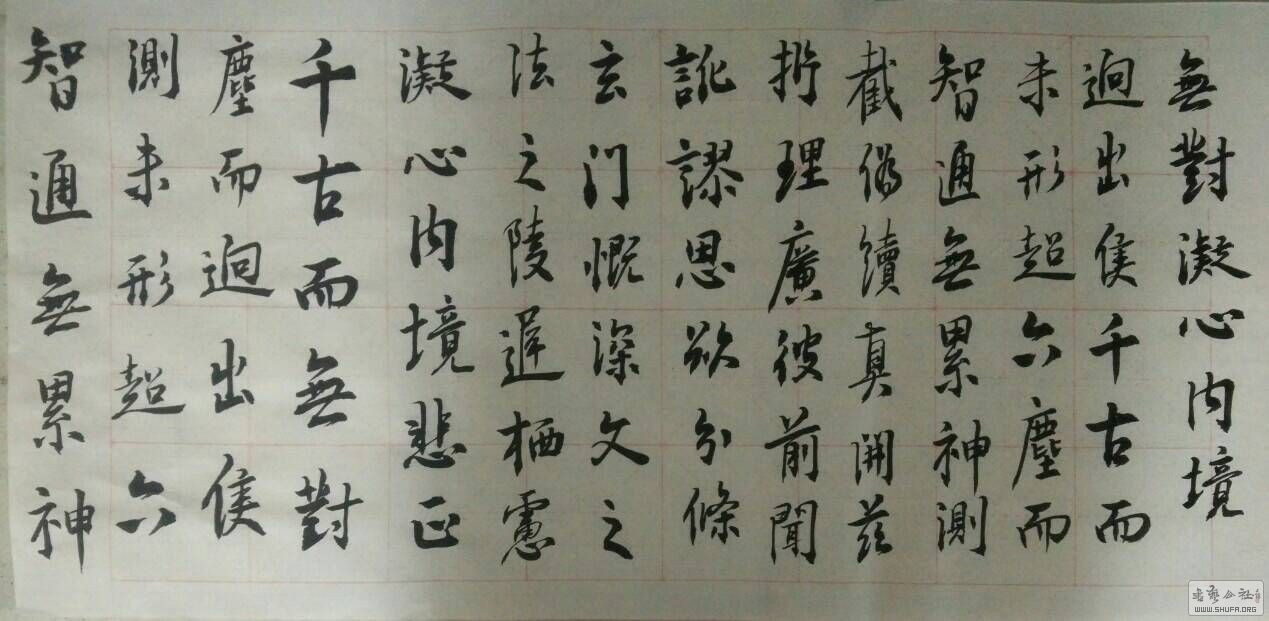 無對凝心内境
迥出隻千古而
未形超六塵而
智通無累神測
截偽續真開茲
折理廣彼前聞
訛謬思欲分條
玄门慨深文之
法之陵遲栖慮
凝心内境悲正
千古而無對
塵而迥出隻
測未形超六
智通無累神
書藝公社
WWW.SHUFA.ORG